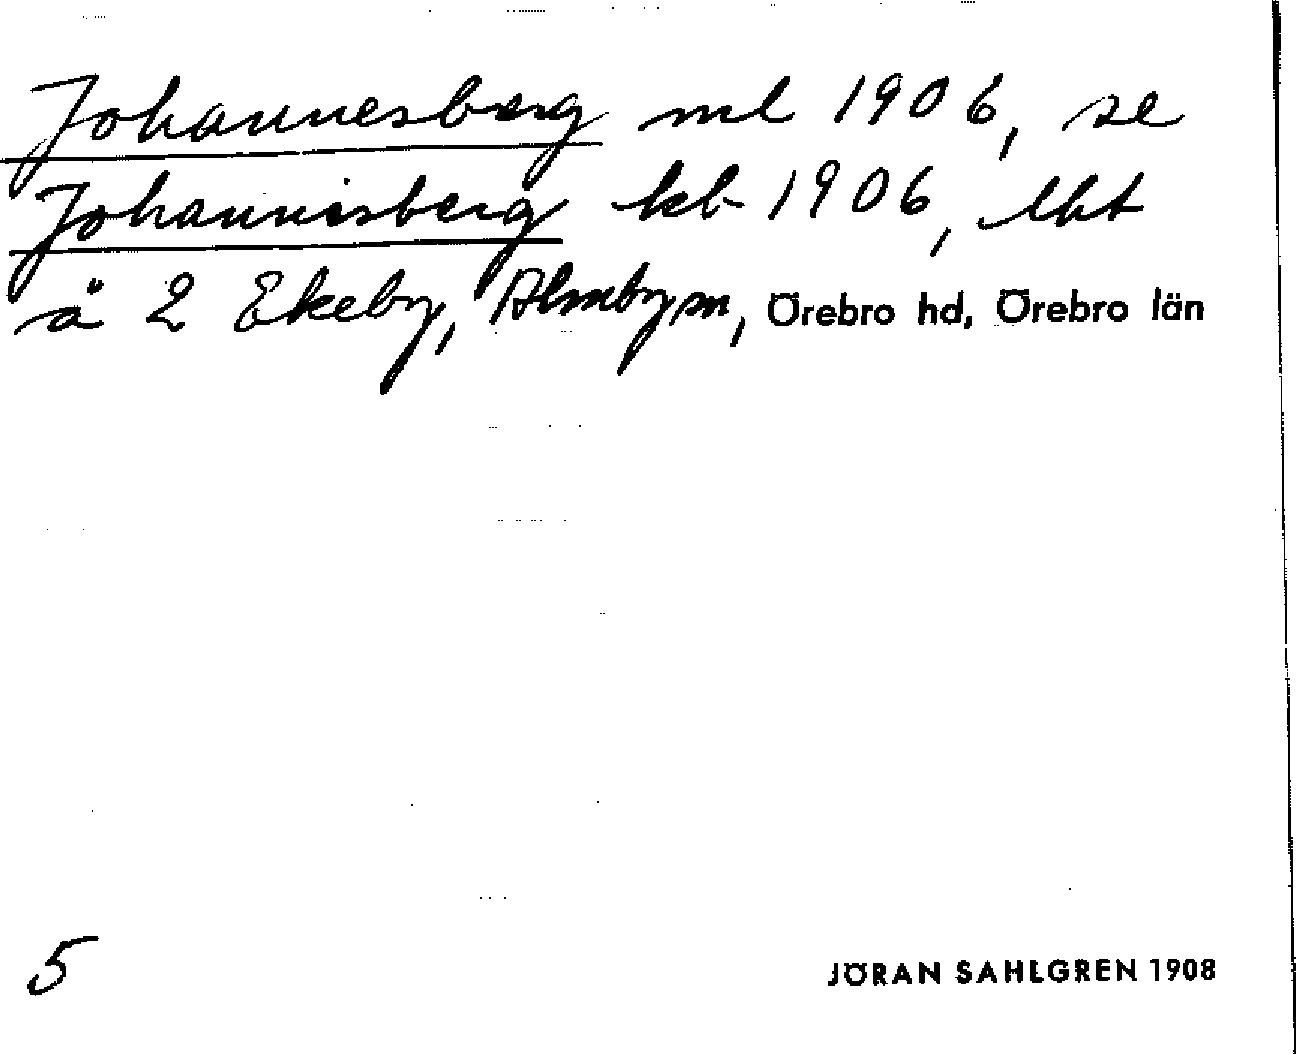 Johannesberg ml 1906, se
Johannisberg kb 1906, lht
å 2 Ekeby, Almby sn, Örebro hd, Örebro län
5
JÖRAN SAHLGREN 1908